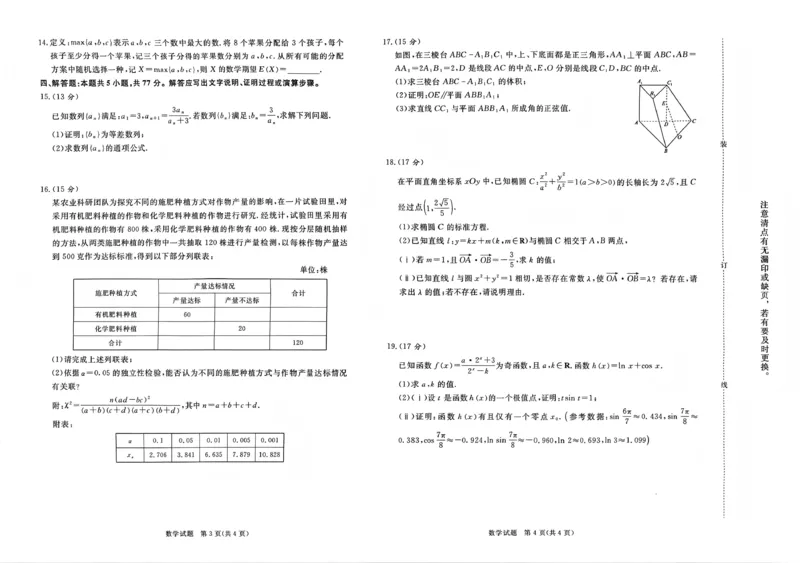 14.定义:max{a,b,c}表示a,b,c三个数中最大的数.将8个苹果分配给3个孩子,每个
孩子至少分得一个苹果,记三个孩子分得的苹果数分别为a,b,c.从所有可能的分配
方案中随机选择一种,记X=max{a,b,c},则X的数学期望E(X)=________.
四、解答题:本题共5小题,共77分。解答应写出文字说明、证明过程或演算步骤。
15.(13分)
已知数列{aₙ}满足:a₁=3,aₙ₊₁=3aₙ/(aₙ+3).若数列{bₙ}满足:bₙ=3/aₙ,求解下列问题.
(1)证明:{bₙ}为等差数列;
(2)求数列{aₙ}的通项公式.
16.(15分)
某农业科研团队为探究不同的施肥种植方式对作物产量的影响,在一片试验田里,对
采用有机肥料种植的作物和化学肥料种植的作物进行研究.经统计,试验田里采用有
机肥料种植的作物有800株,采用化学肥料种植的作物有400株.现按分层随机抽样
的方法,从两类施肥种植的作物中一共抽取120株进行产量检测,以每株作物产量达
到500克作为达标标准,得到以下部分列联表:
单位:株
施肥种植方式 产量达标情况 合计
产量达标 产量不达标
有机肥料种植 60
化学肥料种植 20
合计 120
(1)请完成上述列联表;
(2)依据α=0.05的独立性检验,能否认为不同的施肥种植方式与作物产量达标情况
有关联?
附:χ²=n(ad-bc)²/((a+b)(c+d)(a+c)(b+d)),其中n=a+b+c+d.
附表:
α 0.1 0.05 0.01 0.005 0.001
xα 2.706 3.841 6.635 7.879 10.828
数学试题 第3页(共4页)
17.(15分)
如图,在三棱台ABC-A₁B₁C₁中,上、下底面都是正三角形,AA₁⊥平面ABC,AB=
AA₁=2A₁B₁=2,D是线段AC的中点,E,O分别是线段C₁D,BC的中点.
(1)求三棱台ABC-A₁B₁C₁的体积;
(2)证明:OE∥平面ABB₁A₁;
(3)求直线CC₁与平面ABB₁A₁所成角的正弦值.
A₁ C₁
B₁
E
A D C
O
B
18.(17分)
在平面直角坐标系xOy中,已知椭圆C:x²/a²+y²/b²=1(a>b>0)的长轴长为2√5,且C
经过点(1,2√5/5).
(1)求椭圆C的标准方程.
(2)已知直线l:y=kx+m(k,m∈R)与椭圆C相交于A,B两点,
(ⅰ)若m=1,且OA→·OB→=-3/5,求k的值;
(ⅱ)已知直线l与圆x²+y²=1相切,是否存在常数λ,使OA→·OB→=λ?若存在,请
求出λ的值;若不存在,请说明理由.
19.(17分)
已知函数f(x)=(a·2ˣ+3)/(2ˣ-k)为奇函数,且a,k∈R.函数h(x)=ln x+cos x.
(1)求a,k的值.
(2)(ⅰ)设t是函数h(x)的一个极值点,证明:tsin t=1;
(ⅱ)证明:函数h(x)有且仅有一个零点x₀.(参考数据:sin 6π/7≈0.434,sin 7π/8≈
0.383,cos 7π/8≈-0.924,ln sin 7π/8≈-0.960,ln 2≈0.693,ln 3≈1.099)
数学试题 第4页(共4页)
装
订
线
注意清点有无漏印或缺页,若有要及时更换。